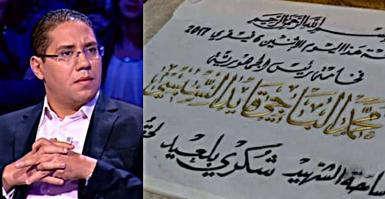 بسم الله الرحمن الرحيم
هذا اليوم الاثنين 6 فيفري 2017
فخامة رئيس الجمهورية
محمد الباجي قايد السبسي
ساحة الشهيد شكري بلعيد